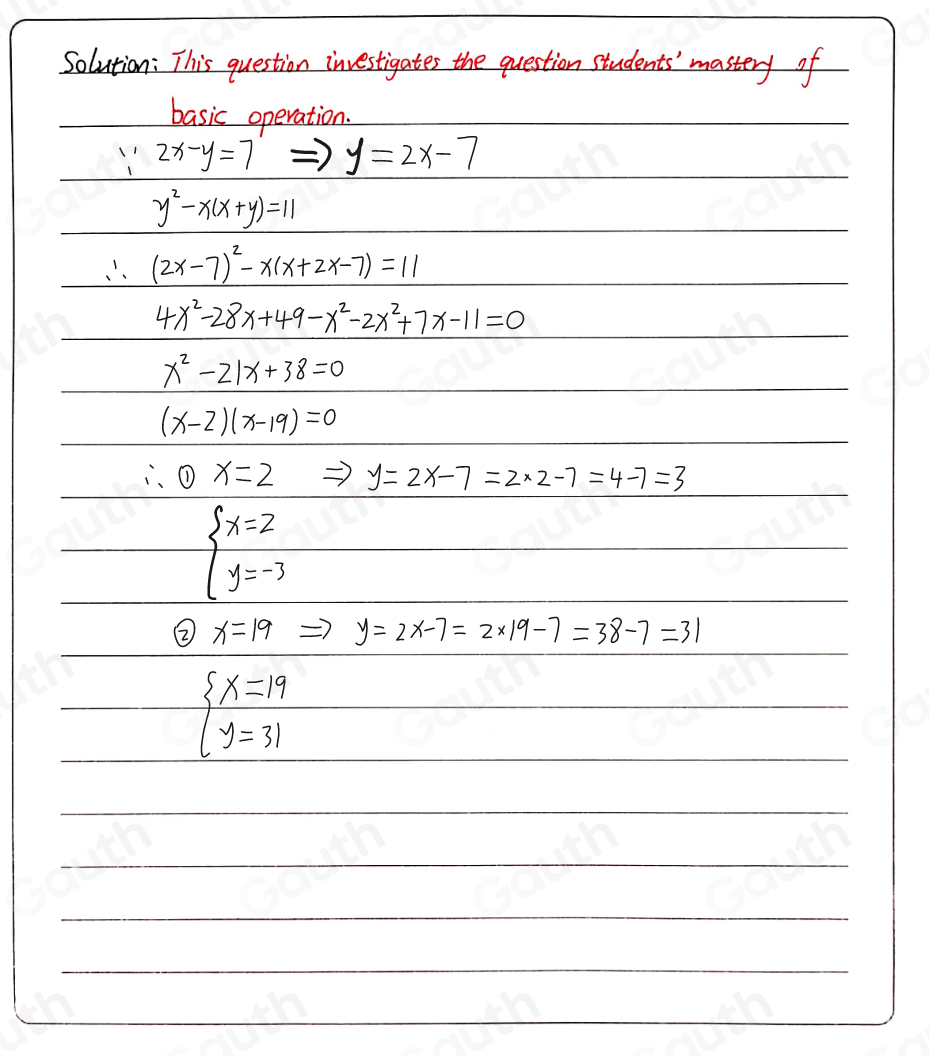 Solution: This question investigates the question students' mastery of
basic operation.
∵ 2x-y=7 ⇒ y=2x-7
y²-x(x+y)=11
∴ (2x-7)²-x(x+2x-7)=11
4x²-28x+49-x²-2x²+7x-11=0
x²-21x+38=0
(x-2)(x-19)=0
∴ ① x=2 ⇒ y=2x-7=2×2-7=4-7=3
{x=2
y=-3
② x=19 ⇒ y=2x-7=2×19-7=38-7=31
{x=19
y=31